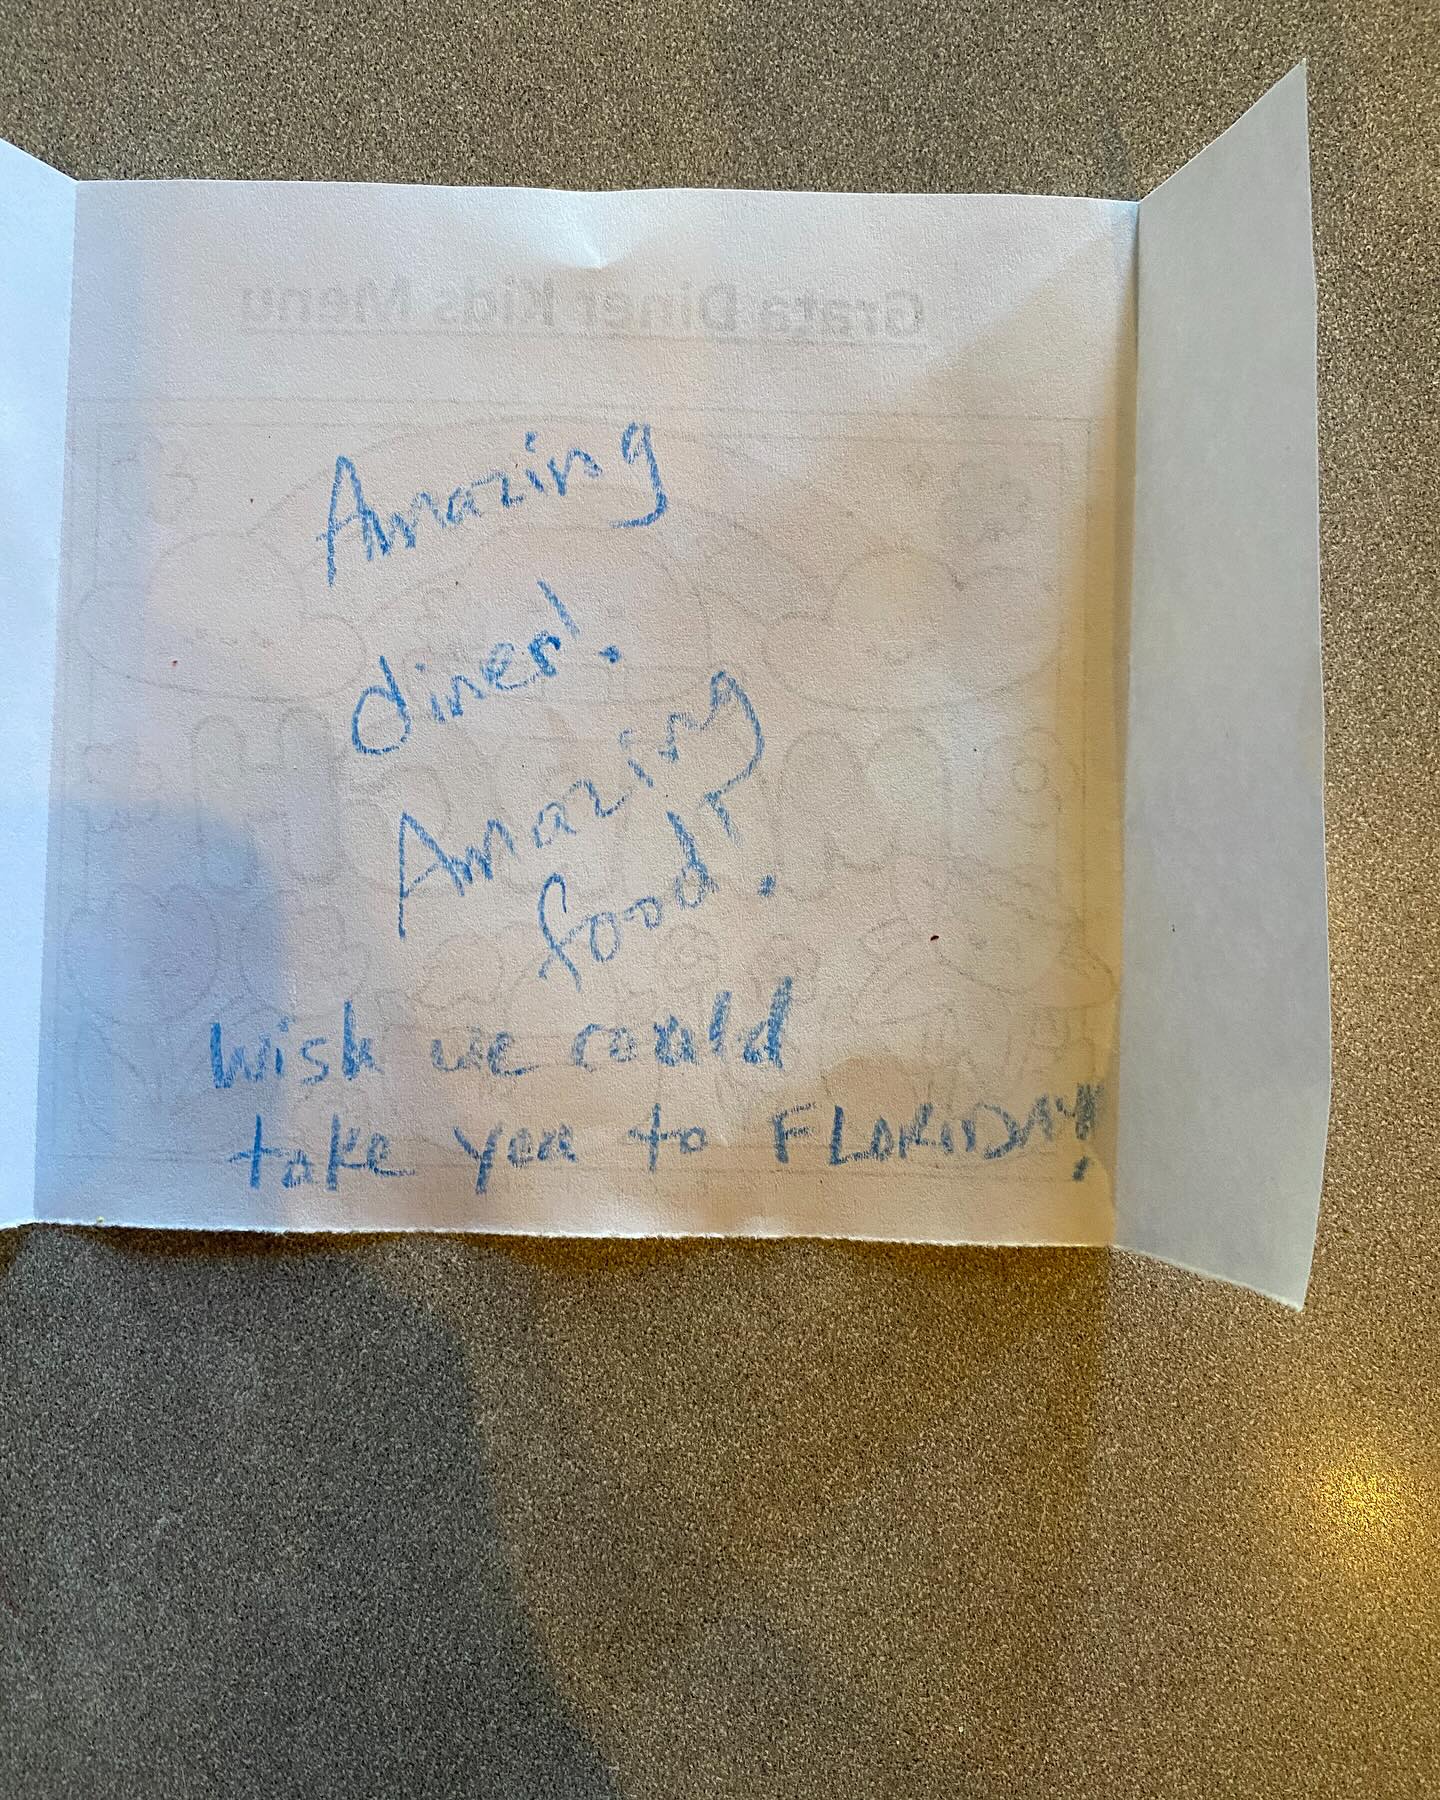 Grata Diner Kids Menu
Amazing
diner!
Amazing
food!
wish we could
take you to FLORIDA!